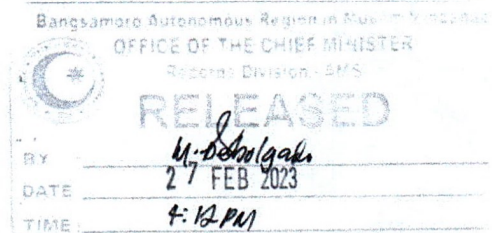 Bangsamoro Autonomous Region in Muslim Mindanao
OFFICE OF THE CHIEF MINISTER
Records Division - AMS
RELEASED
BY
DATE 27 FEB 2023
TIME 4:12 PM